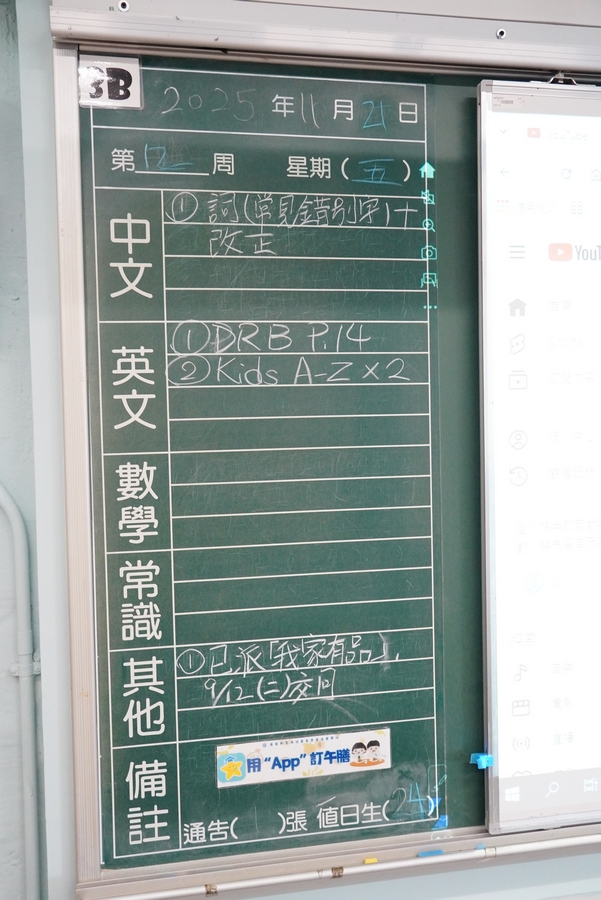 3B
2025年11月21日
第12周 星期(五)
中文
① 詞(常見錯別字)+
改正
英文
① DRB P.14
② Kids A-Z x 2
數學
常識
其他
① 已派「我家有品」,
9/12(二)交回
備註
用“App”訂午膳
通告( )張 值日生(24)
YouTube
YouT